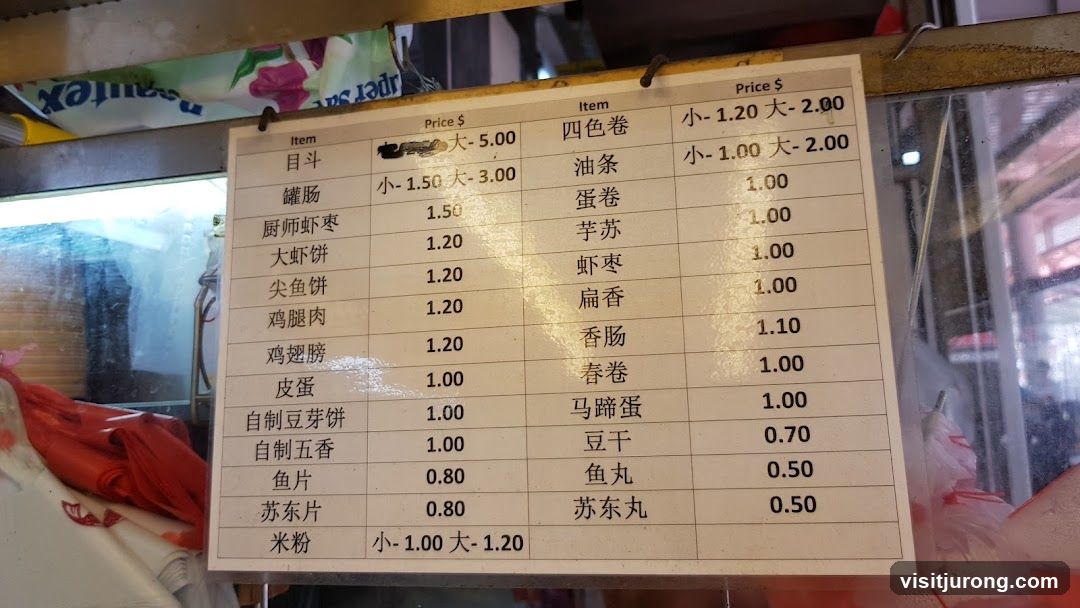 Beautex
Item Price $ Item Price $
目斗 大- 5.00 四色卷 小- 1.20 大- 2.00
罐肠 小- 1.50 大- 3.00 油条 小- 1.00 大- 2.00
厨师虾枣 1.50 蛋卷 1.00
大虾饼 1.20 芋苏 1.00
尖鱼饼 1.20 虾枣 1.00
鸡腿肉 1.20 扁香 1.00
鸡翅膀 1.20 香肠 1.10
皮蛋 1.00 春卷 1.00
自制豆芽饼 1.00 马蹄蛋 1.00
自制五香 1.00 豆干 0.70
鱼片 0.80 鱼丸 0.50
苏东片 0.80 苏东丸 0.50
米粉 小- 1.00 大- 1.20
visitjurong.com